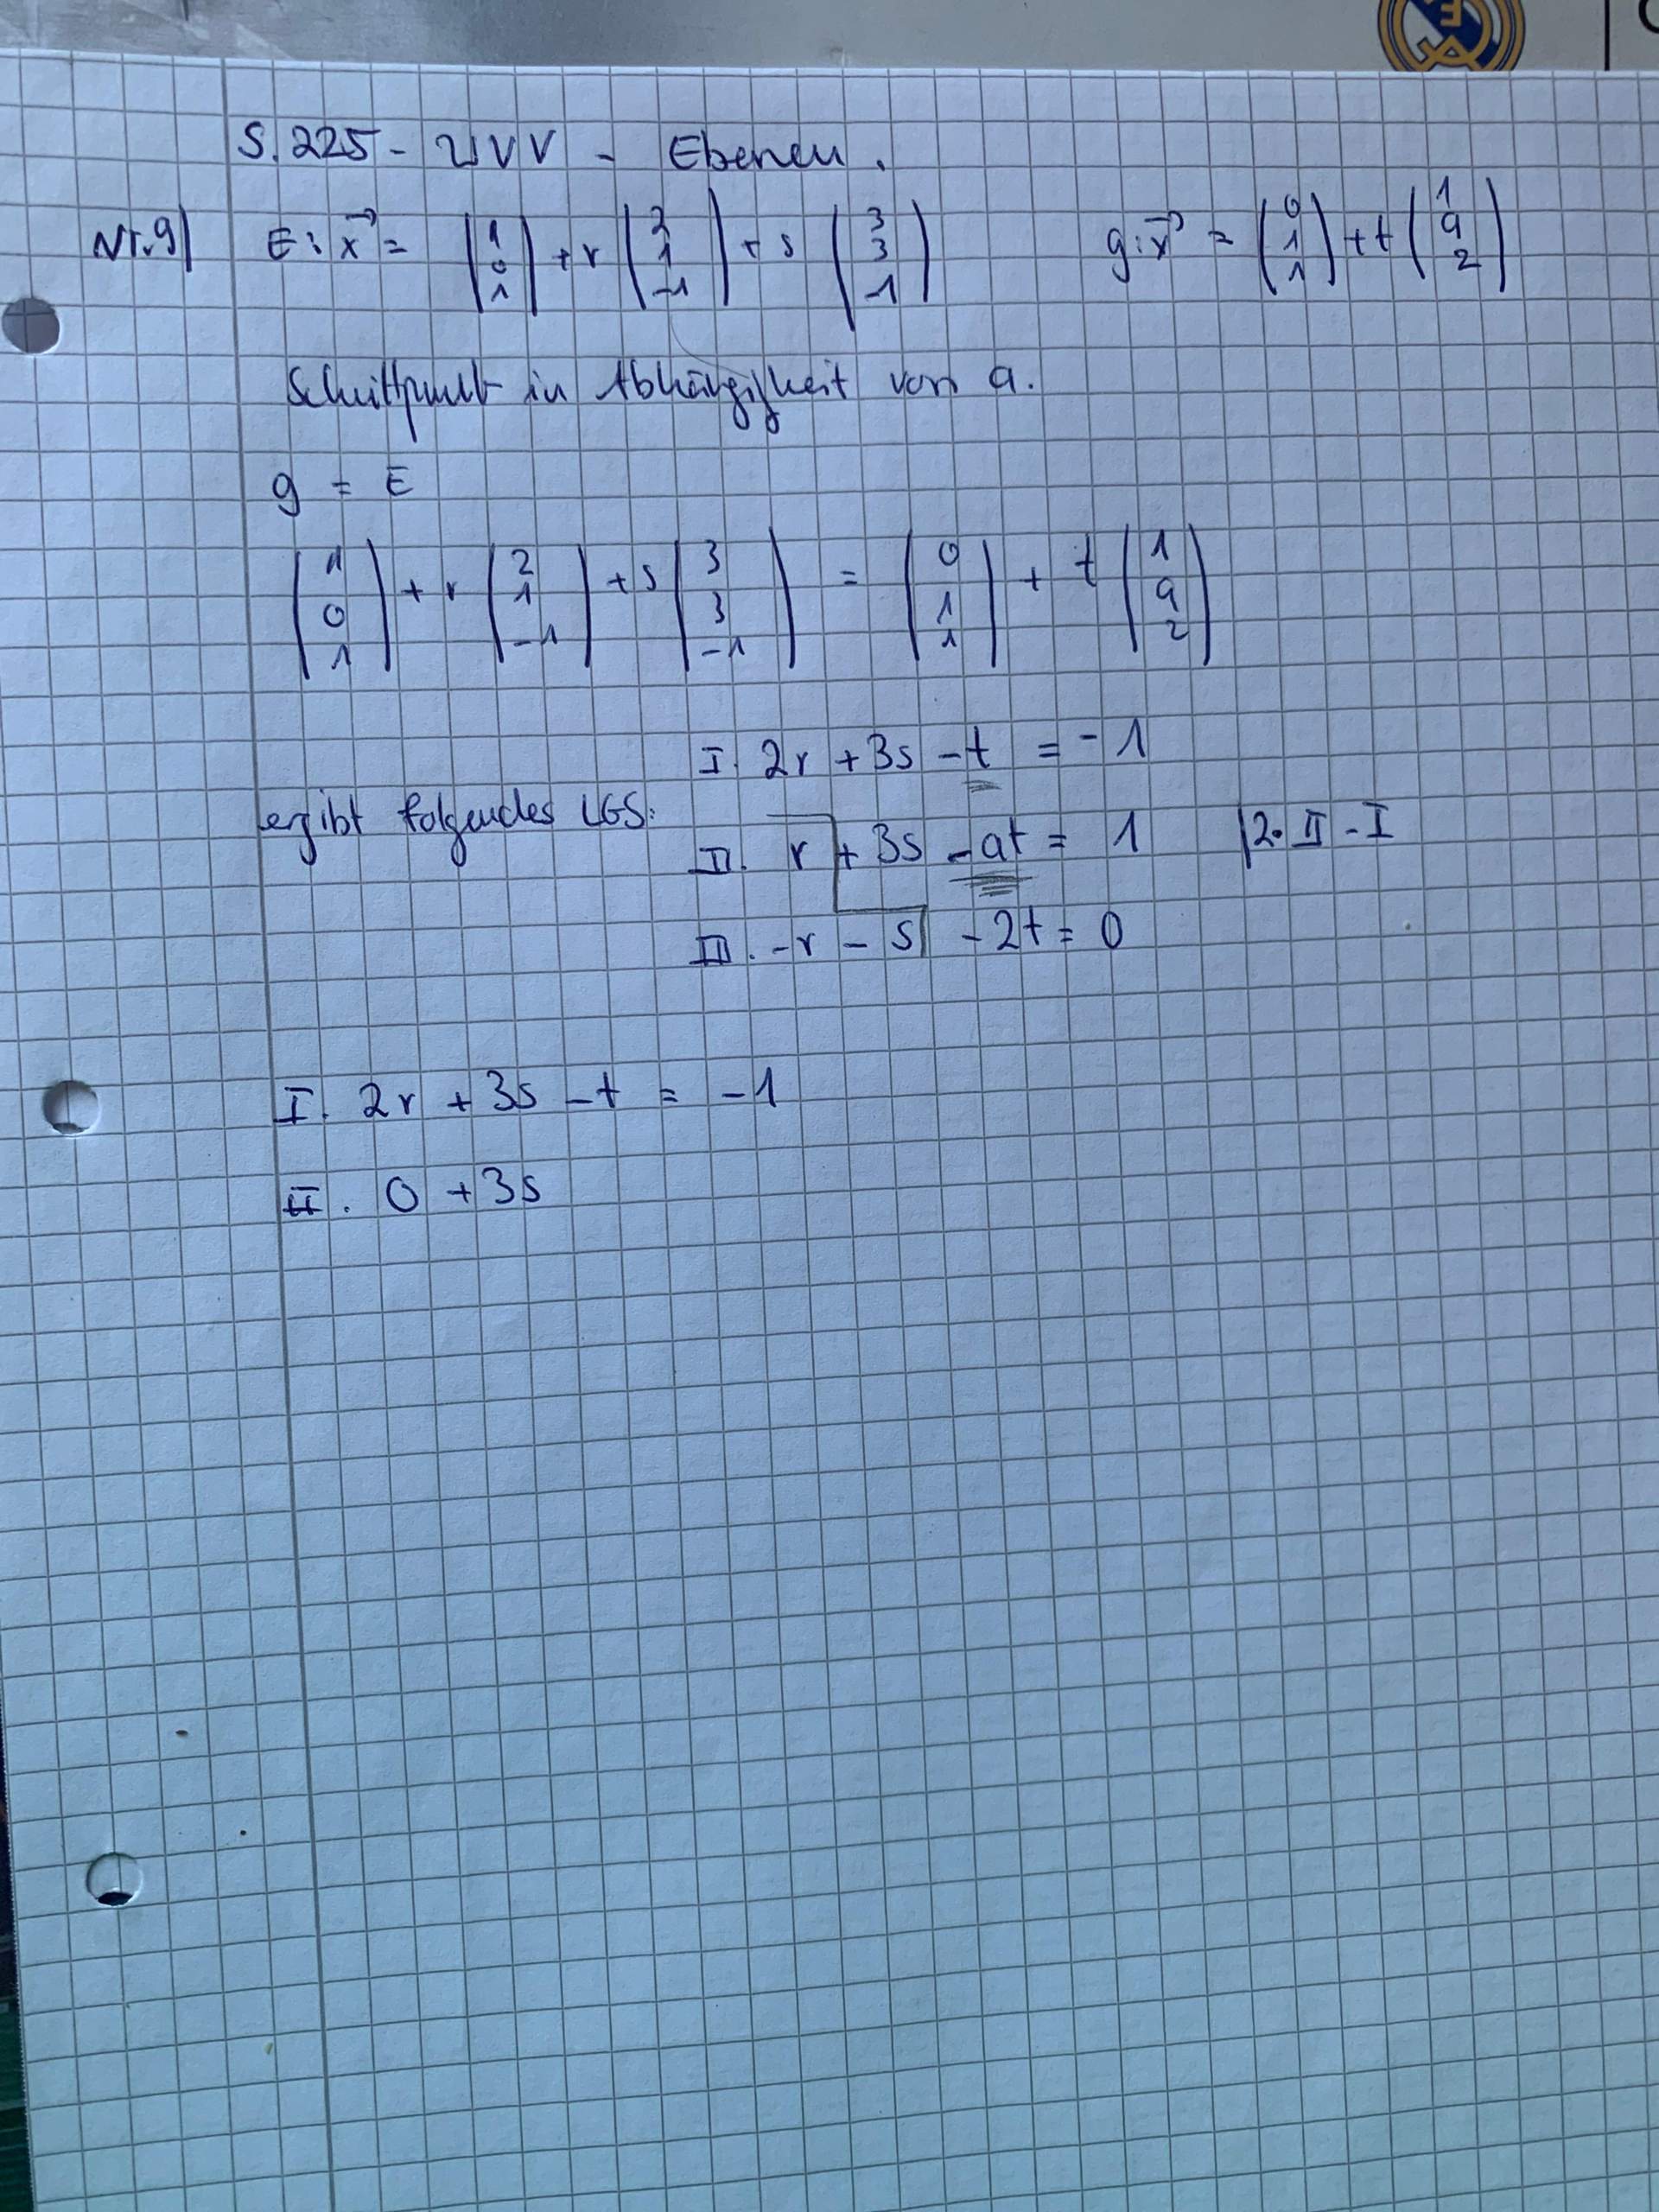 S. 225 - UVV - Ebenen.
Nr. 9) E: x⃗ = (1 0 1) + r (2 1 -1) + s (3 3 -1) g: x⃗ = (0 1 1) + t (1 a 2)
Schnittpunkt in Abhängigkeit von a.
g = E
(1 0 1) + r (2 1 -1) + s (3 3 -1) = (0 1 1) + t (1 a 2)
I. 2r + 3s - t = -1
ergibt folgendes LGS:
II. r + 3s - at = 1 | 2·II - I
III. -r - s - 2t = 0
I. 2r + 3s - t = -1
II. 0 + 3s